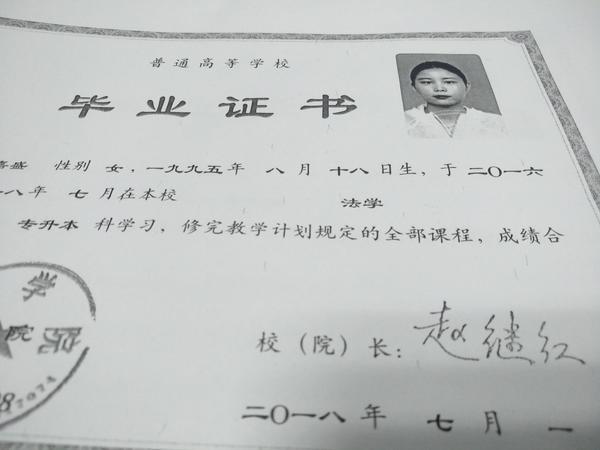 普通高等学校
毕业证书
盛 性别 女,一九九五年 八月 十八日生,于 二〇一六
一八年 七月在本校 法学
专升本 科学习,修完教学计划规定的全部课程,成绩合
学
院
校(院)长: 赵继红
二〇一八年 七月 一